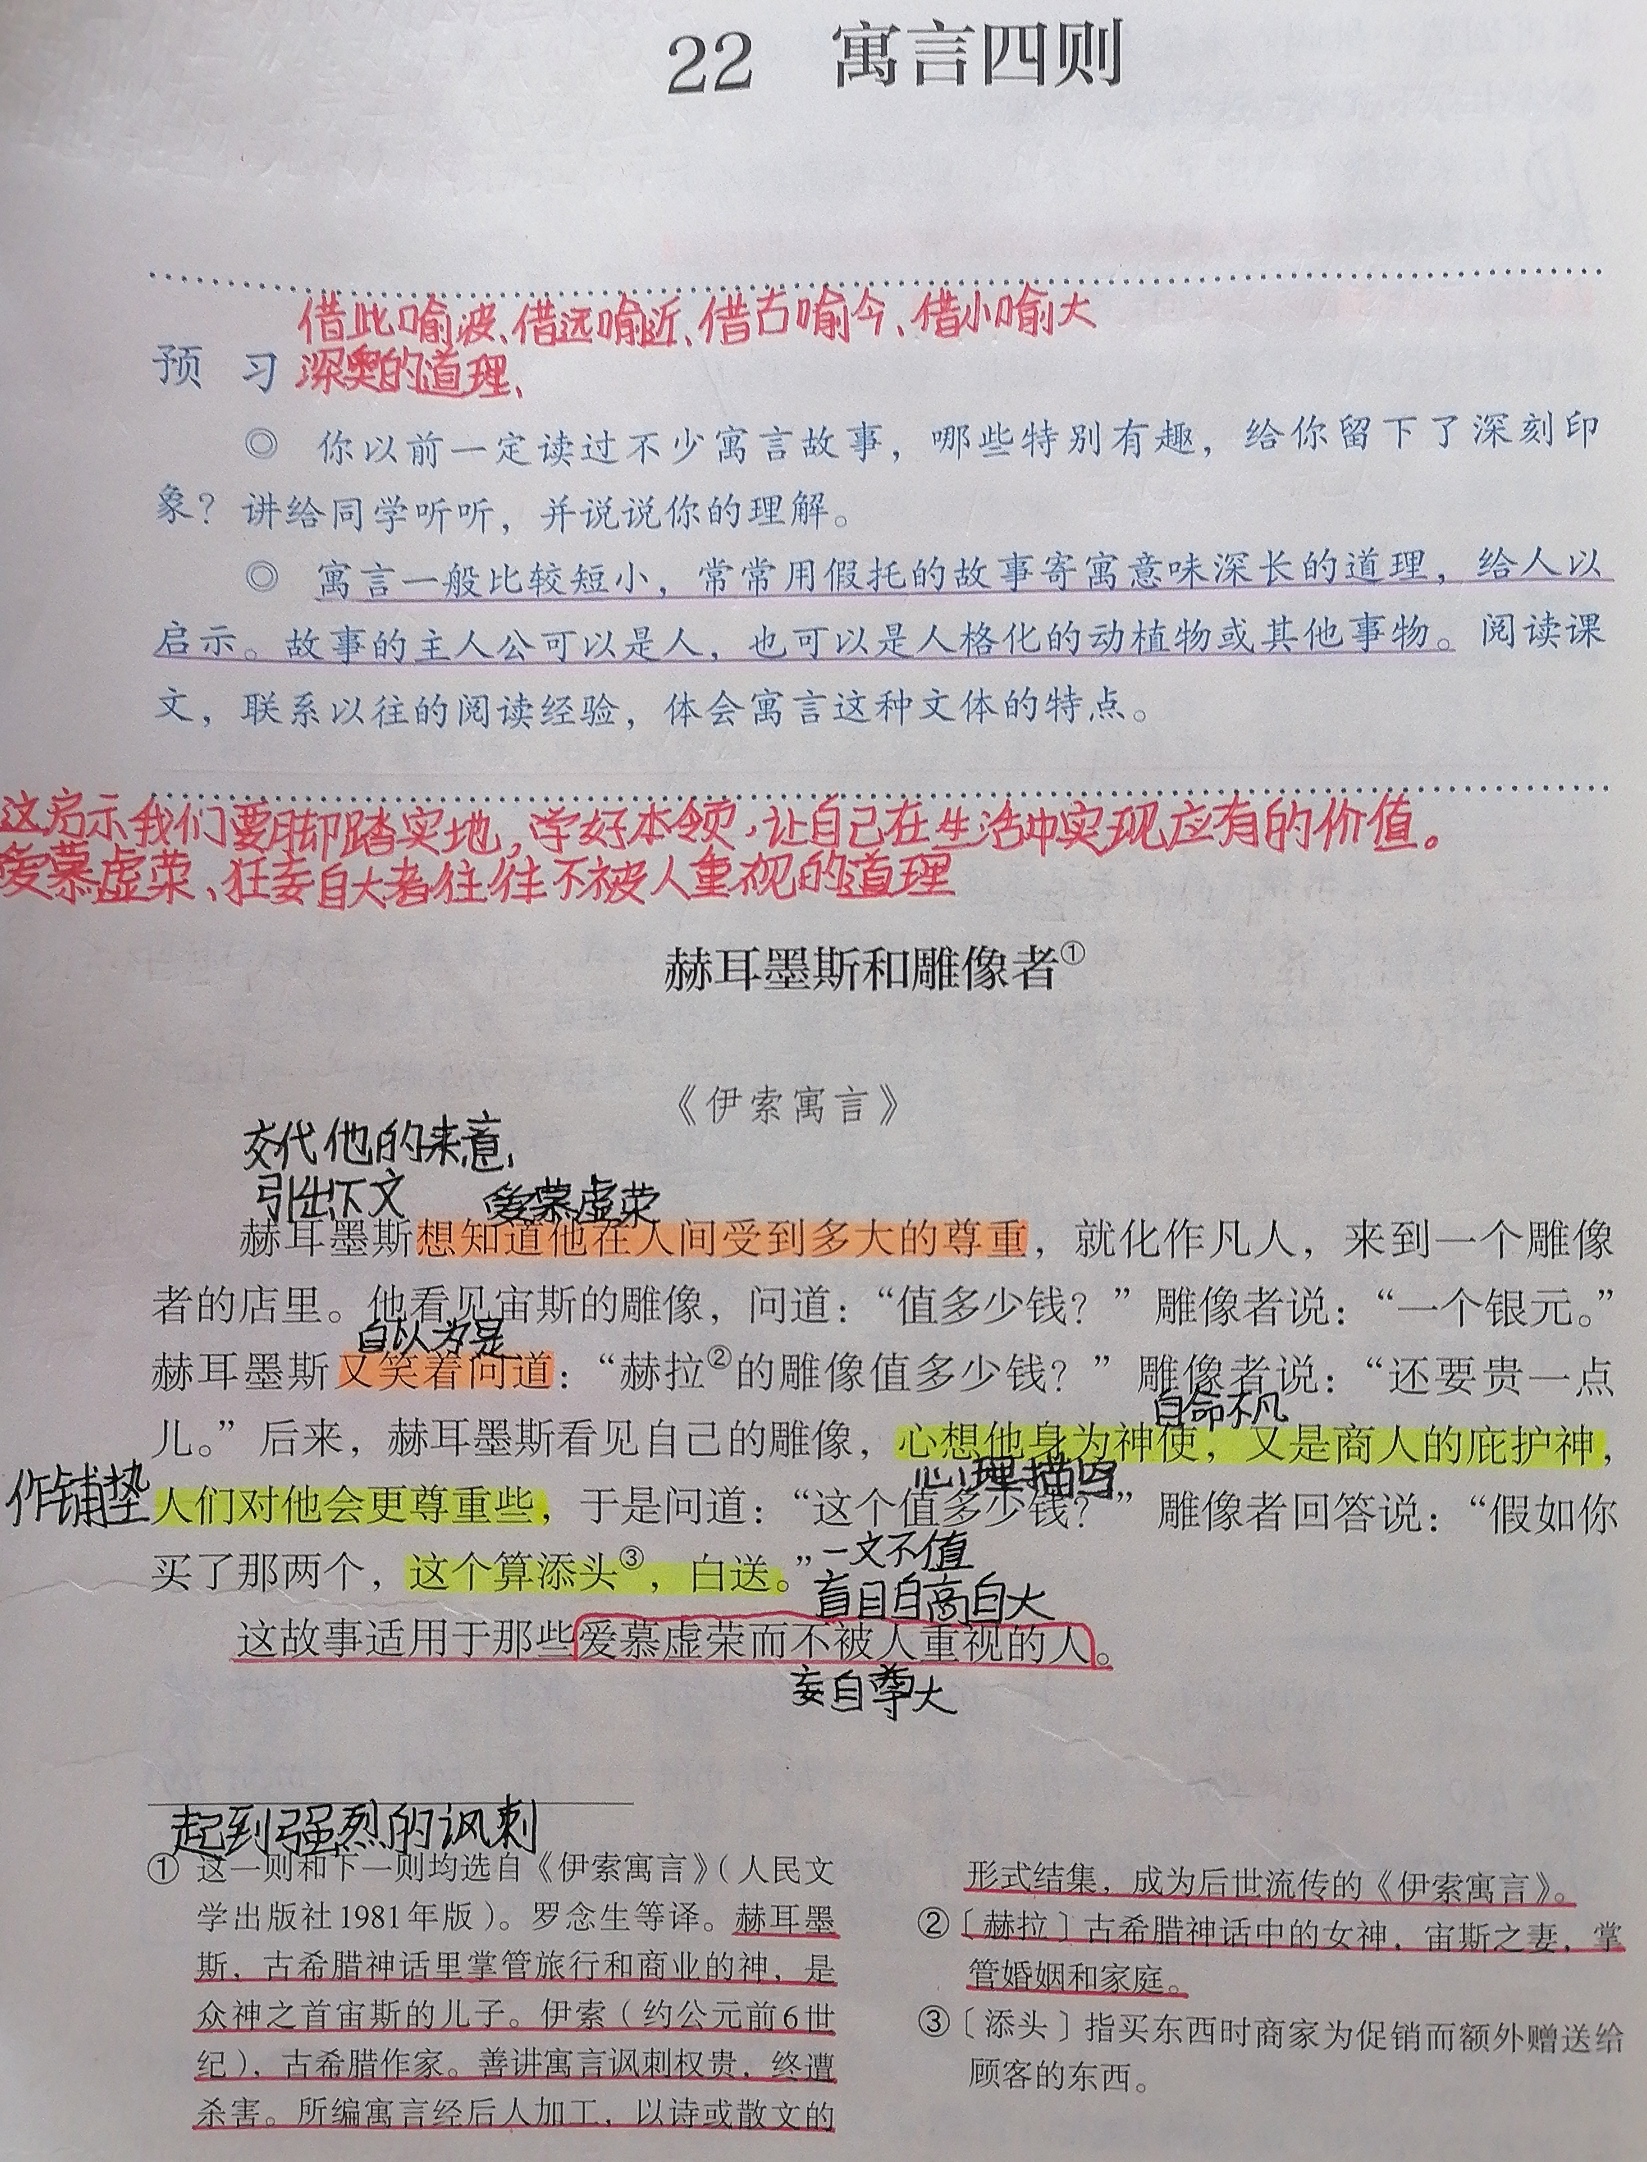 22 寓言四则
借此喻彼、借远喻近、借古喻今、借小喻大
预 习
深奥的道理、
◎ 你以前一定读过不少寓言故事，哪些特别有趣，给你留下了深刻印
象？讲给同学听听，并说说你的理解。
◎ 寓言一般比较短小，常常用假托的故事寄寓意味深长的道理，给人以
启示。故事的主人公可以是人，也可以是人格化的动植物或其他事物。阅读课
文，联系以往的阅读经验，体会寓言这种文体的特点。
这启示我们要脚踏实地，学好本领，让自己在生活中实现应有的价值。
爱慕虚荣、狂妄自大者往往不被人重视的道理
赫耳墨斯和雕像者①
《伊索寓言》
交代他的来意，
引出下文
爱慕虚荣
赫耳墨斯想知道他在人间受到多大的尊重，就化作凡人，来到一个雕像
者的店里。他看见宙斯的雕像，问道：“值多少钱？”雕像者说：“一个银元。”
自以为是
赫耳墨斯又笑着问道：“赫拉②的雕像值多少钱？”雕像者说：“还要贵一点
自命不凡
儿。”后来，赫耳墨斯看见自己的雕像，心想他身为神使，又是商人的庇护神，
心理描写
作铺垫
人们对他会更尊重些，于是问道：“这个值多少钱？”雕像者回答说：“假如你
一文不值
买了那两个，这个算添头③，白送。”
盲目自高自大
这故事适用于那些爱慕虚荣而不被人重视的人。
妄自尊大
起到强烈的讽刺
① 这一则和下一则均选自《伊索寓言》（人民文
学出版社1981年版）。罗念生等译。赫耳墨
斯，古希腊神话里掌管旅行和商业的神，是
众神之首宙斯的儿子。伊索（约公元前6世
纪），古希腊作家。善讲寓言讽刺权贵，终遭
杀害。所编寓言经后人加工，以诗或散文的
形式结集，成为后世流传的《伊索寓言》。
②〔赫拉〕古希腊神话中的女神，宙斯之妻，掌
管婚姻和家庭。
③〔添头〕指买东西时商家为促销而额外赠送给
顾客的东西。